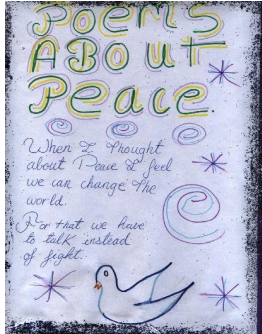 Poems
About
Peace.
When I thought
about Peace I feel
we can change the
world.
For that we have
to talk instead
of fight.